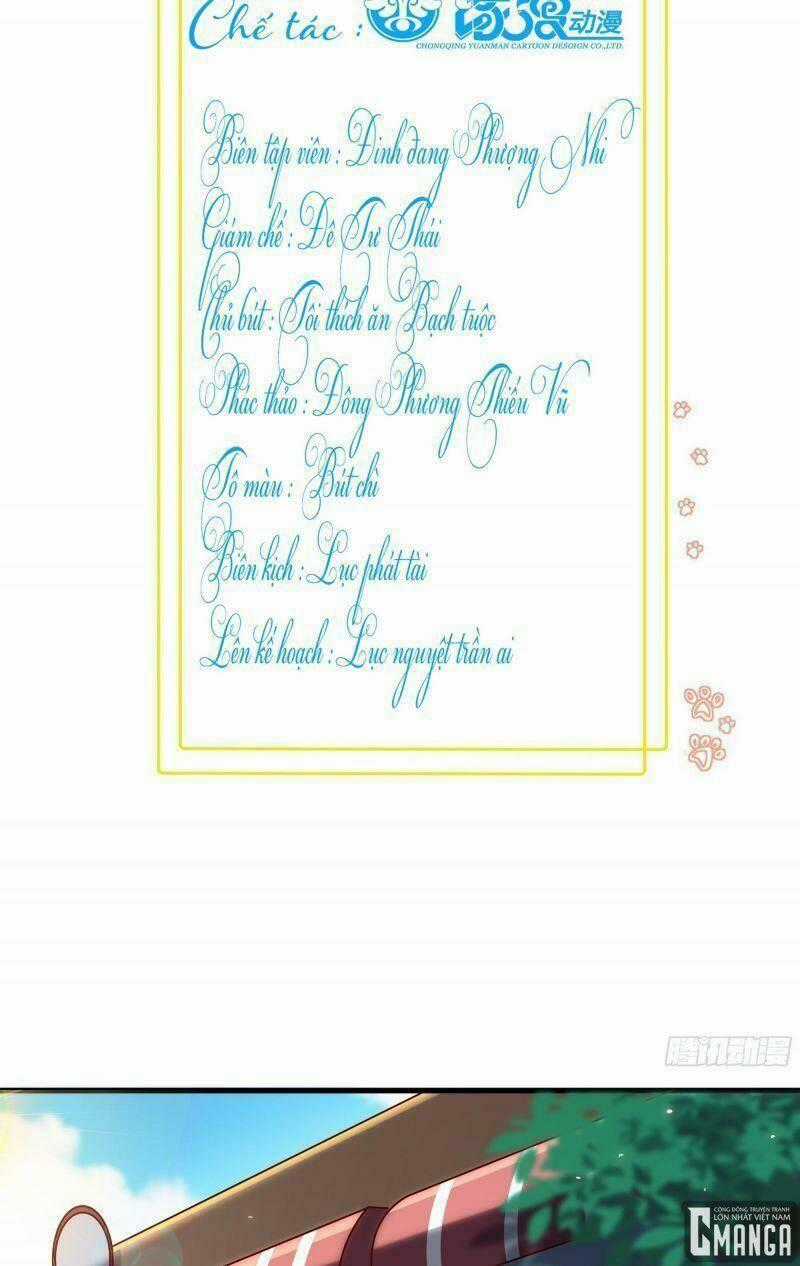 Chế tác : 动漫
CHONGQING YUANMAN CARTOON DESOIGN CO.,LTD.
Biên tập viên : Đinh đang Phượng Nhi
Giám chế : Đê Tư Thái
Chủ bút : Tôi thích ăn Bạch tuộc
Phác thảo : Đông Phương Thiếu Vũ
Tô màu : Bút chì
Biên kịch : Lục phát tài
Lên kế hoạch : Lục nguyệt trần ai
腾讯动漫
CỘNG ĐỒNG TRUYỆN TRANH
LỚN NHẤT VIỆT NAM
CMANGA